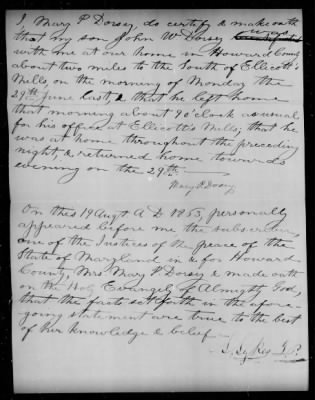 I, Mary P. Dorsey, do certify & make oath
that my son John W Dorsey was
with me at our home in Howard County
about two miles to the South of Ellicott's
Mills, on the morning of Monday the
29th June last, & that he left home
that morning about 9 o'clock as usual
for his office at Ellicott's Mills; that he
was at home throughout the preceding
night, & returned home towards
evening on the 29th.
Mary P. Dorsey
On this 19 Augt A D 1863, personally
appeared before me the subscriber,
one of the Justices of the peace of the
State of Maryland in & for Howard
County, Mrs Mary P. Dorsey & made oath
on the Holy Evangely of Almighty God,
that the facts set forth in the afore-
going statement are true to the best
of her knowledge & belief
Sykes J.P.